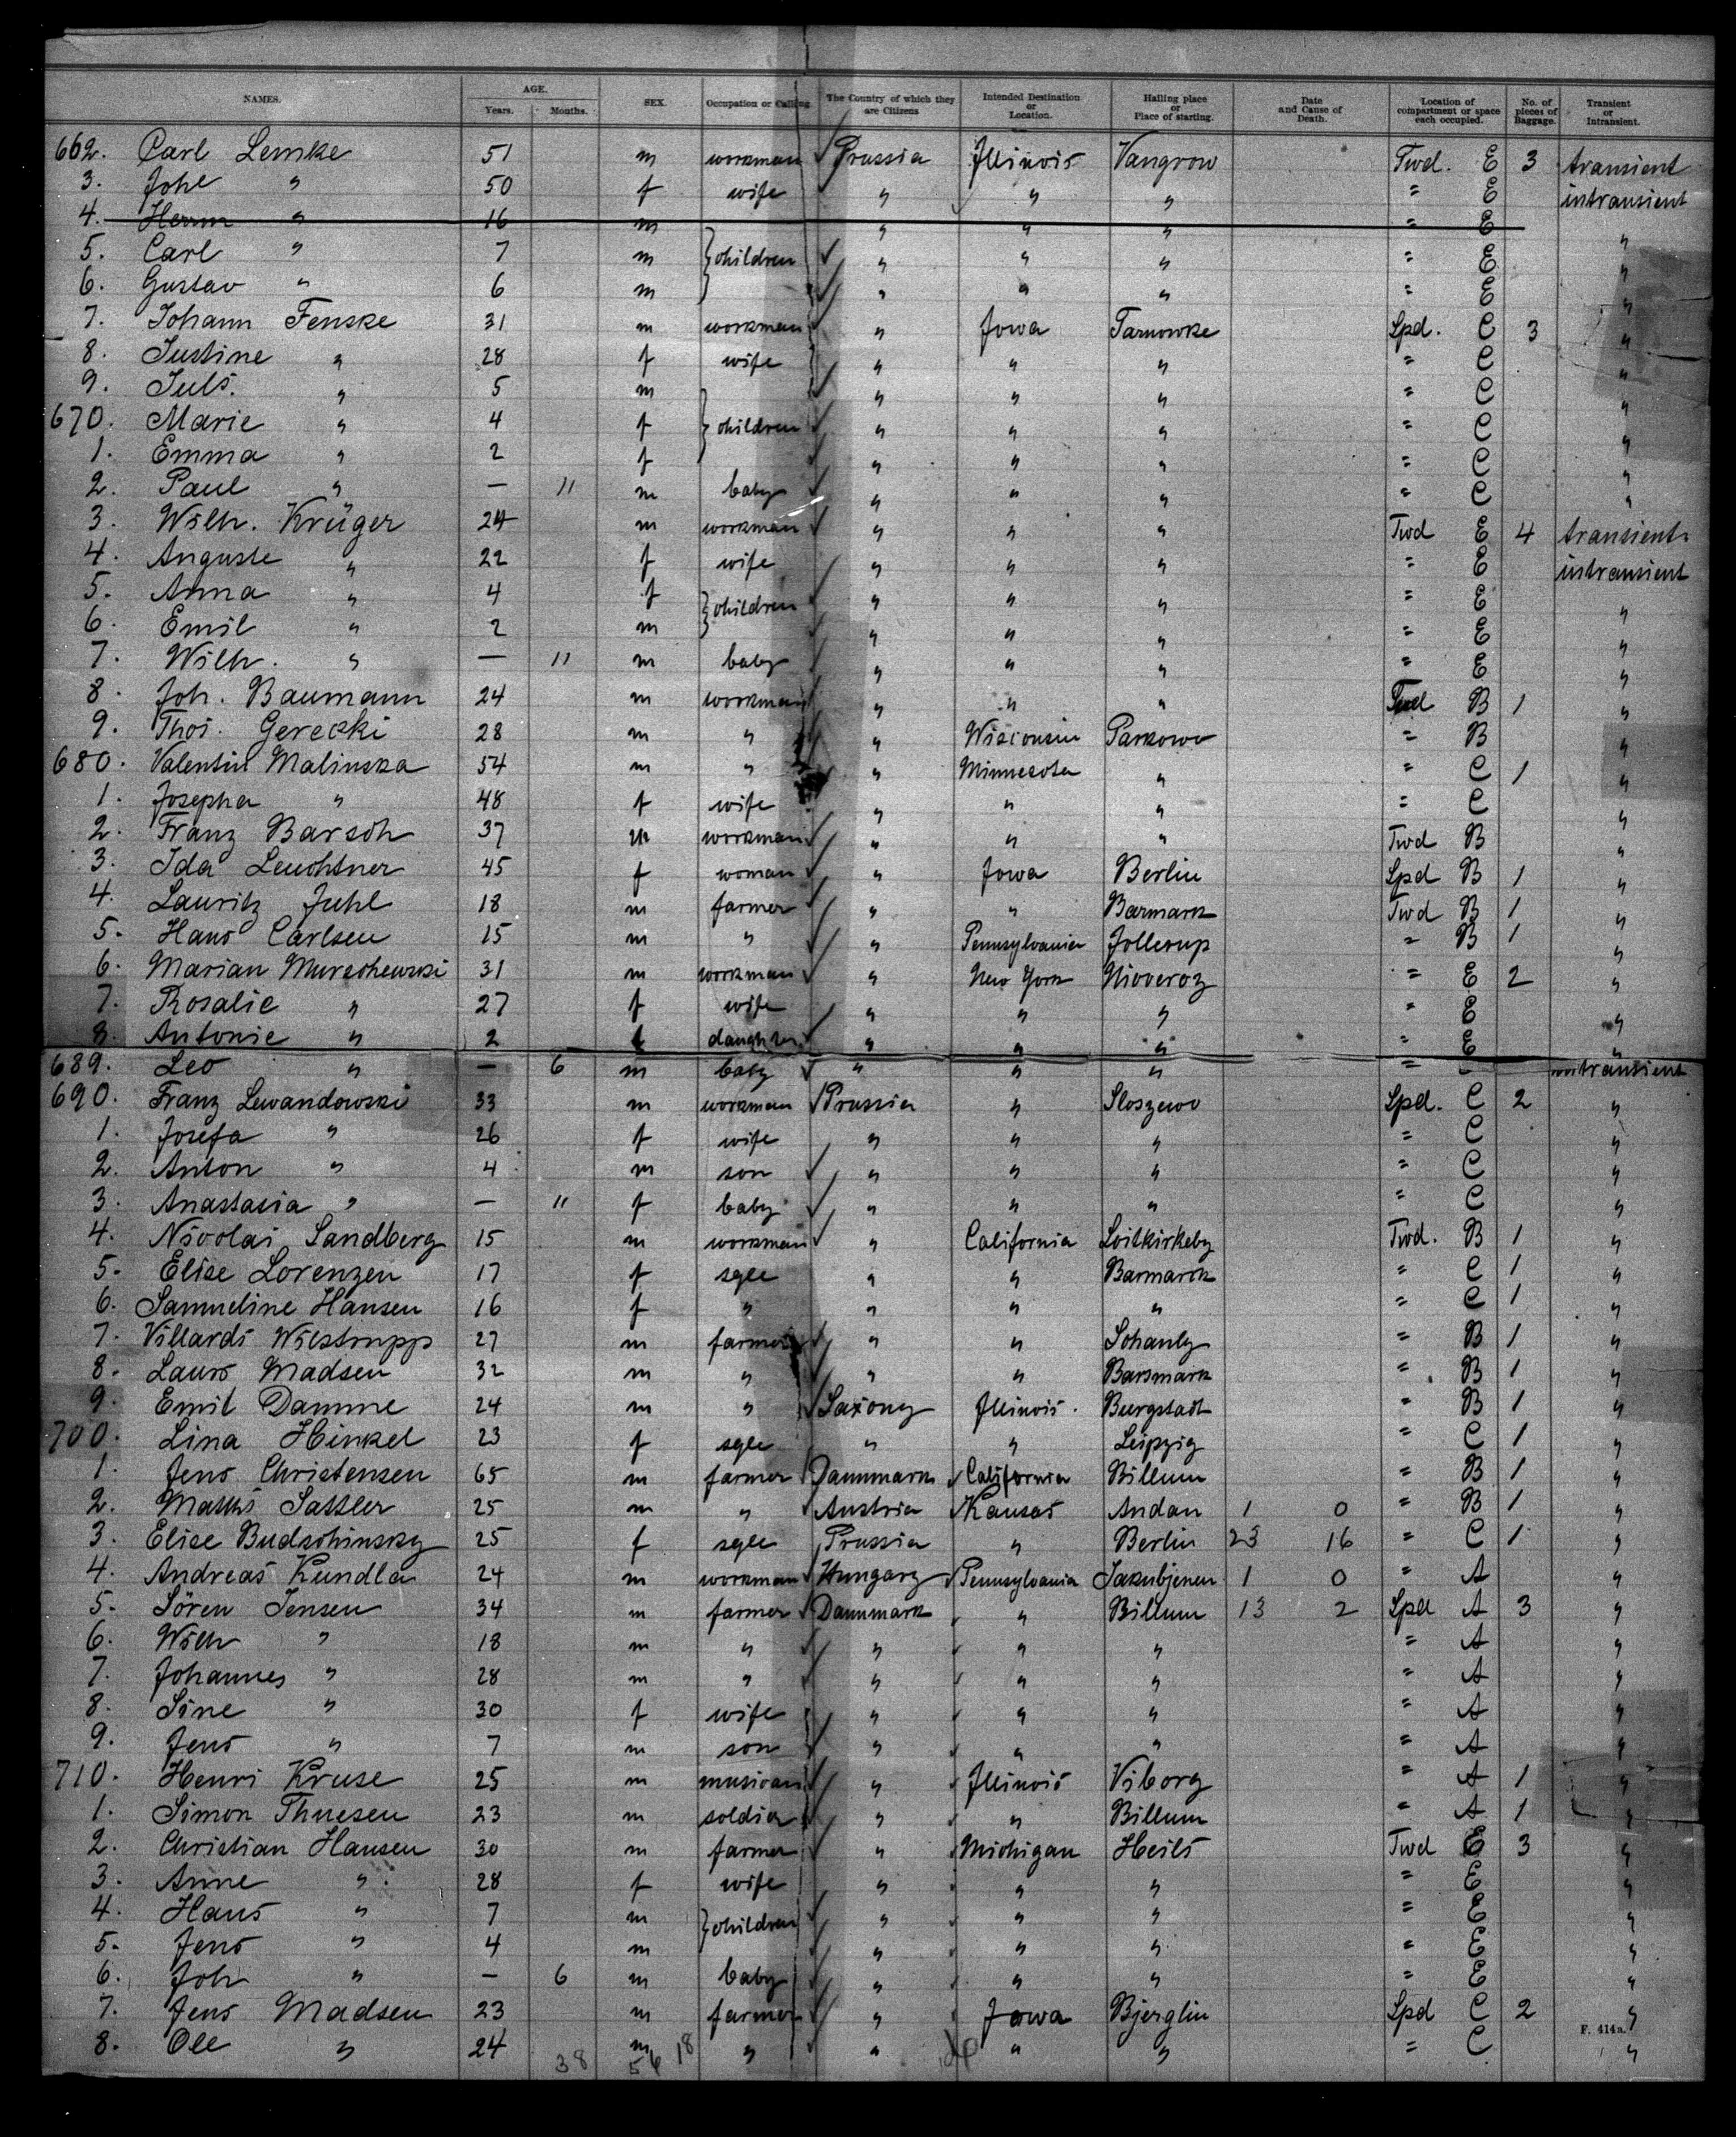 NAMES. AGE. Years. Months. SEX. Occupation or Calling The Country of which they are Citizens Intended Destination or Location. Hailing place or Place of starting. Date and Cause of Death. Location of compartment or space each occupied. No. of pieces of Baggage. Transient or Intransient.
662. Carl Lemke 51 m workman Prussia Illinois Vangrow Twd. E 3 transient
3. Johe " 50 f wife " " " " E intransient
4. Herm " 16 m " " " " E "
5. Carl " 7 m children " " " " E "
6. Gustav " 6 m " " " " E "
7. Johann Fenske 31 m workman " Iowa Tarnowke Spd. C 3 "
8. Justine " 28 f wife " " " " C "
9. Juls. " 5 m " " " " C "
670. Marie " 4 f children " " " " C "
1. Emma " 2 f " " " " C "
2. Paul " — 11 m baby " " " " C "
3. Wilh. Krüger 24 m workman " " " Twd E 4 transient
4. Auguste " 22 f wife " " " " E intransient
5. Anna " 4 f children " " " " E "
6. Emil " 2 m " " " " E "
7. Wilh. " — 11 m baby " " " " E "
8. Joh. Baumann 24 m workman " " " Twd B 1 "
9. Thos. Gerecki 28 m " " Wisconsin Parkowo " B "
680. Valentin Malinska 54 m " " Minnesota " " C 1 "
1. Josepha " 48 f wife " " " " C "
2. Franz Barsch 37 m workman " " " Twd B "
3. Ida Leuchtner 45 f woman " Iowa Berlin Spd B 1 "
4. Lauritz Juhl 18 m farmer " " Barmark Twd B 1 "
5. Hans Carlsen 15 m " " Pennsylvania Jollerup " B 1 "
6. Marian Murschewski 31 m workman " New York " E 2 "
7. Rosalie " 27 f wife " " " " E "
8. Antonie " 2 f daughter " " " " E "
689. Leo " — 6 m baby " " " " intransient
690. Franz Lewandowski 33 m workman Prussia " Sloszewo Spd. C 2 "
1. Josefa " 26 f wife " " " " C "
2. Anton " 4 m son " " " " C "
3. Anastasia " — 11 f baby " " " " C "
4. Nicolai Sandberg 15 m workman " California Loitkirkeby Twd. B 1 "
5. Elise Lorenzen 17 f sgle " " Barmark " C 1 "
6. Samueline Hansen 16 f " " " " " C 1 "
7. Villards Wilstrupp 27 m farmer " " " B 1 "
8. Laurs Madsen 32 m " " " Barsmark " B 1 "
9. Emil Damme 24 m " Saxony Illinois. Burgstadt " B 1 "
700. Lina Hinkel 23 f sgle " " Leipzig " C 1 "
1. Jens Christensen 65 m farmer Dannmark California Billum " B 1 "
2. Maths Sattler 25 m " Austria Kansas Andau 1 0 " B 1 "
3. Elise Budschinsky 25 f sgle Prussia " Berlin 23 16 " C 1 "
4. Andreas Kundla 24 m workman Hungary Pennsylvania Jakubjenen 1 0 " A "
5. Sören Jensen 34 m farmer Dannmark " Billum 13 2 Spd A 3 "
6. Wilh " 18 m " " " " " A "
7. Johannes " 28 m " " " " " A "
8. Sine " 30 f wife " " " " A "
9. Jens " 7 m son " " " " A "
710. Henri Kruse 25 m musican " Illinois Viborg " A 1 "
1. Simon Thuesen 23 m soldier " " Billum " A 1 "
2. Christian Hansen 30 m farmer " Michigan Heils Twd E 3 "
3. Anne " 28 f wife " " " " E "
4. Hans " 7 m children " " " " E "
5. Jens " 4 m " " " " E "
6. Joh " — 6 m baby " " " " E "
7. Jens Madsen 23 m farmer " Iowa Bjerglin Spd C 2 "
F. 414a.
8. Ole " 24 m " " " " " C "
38 56 18